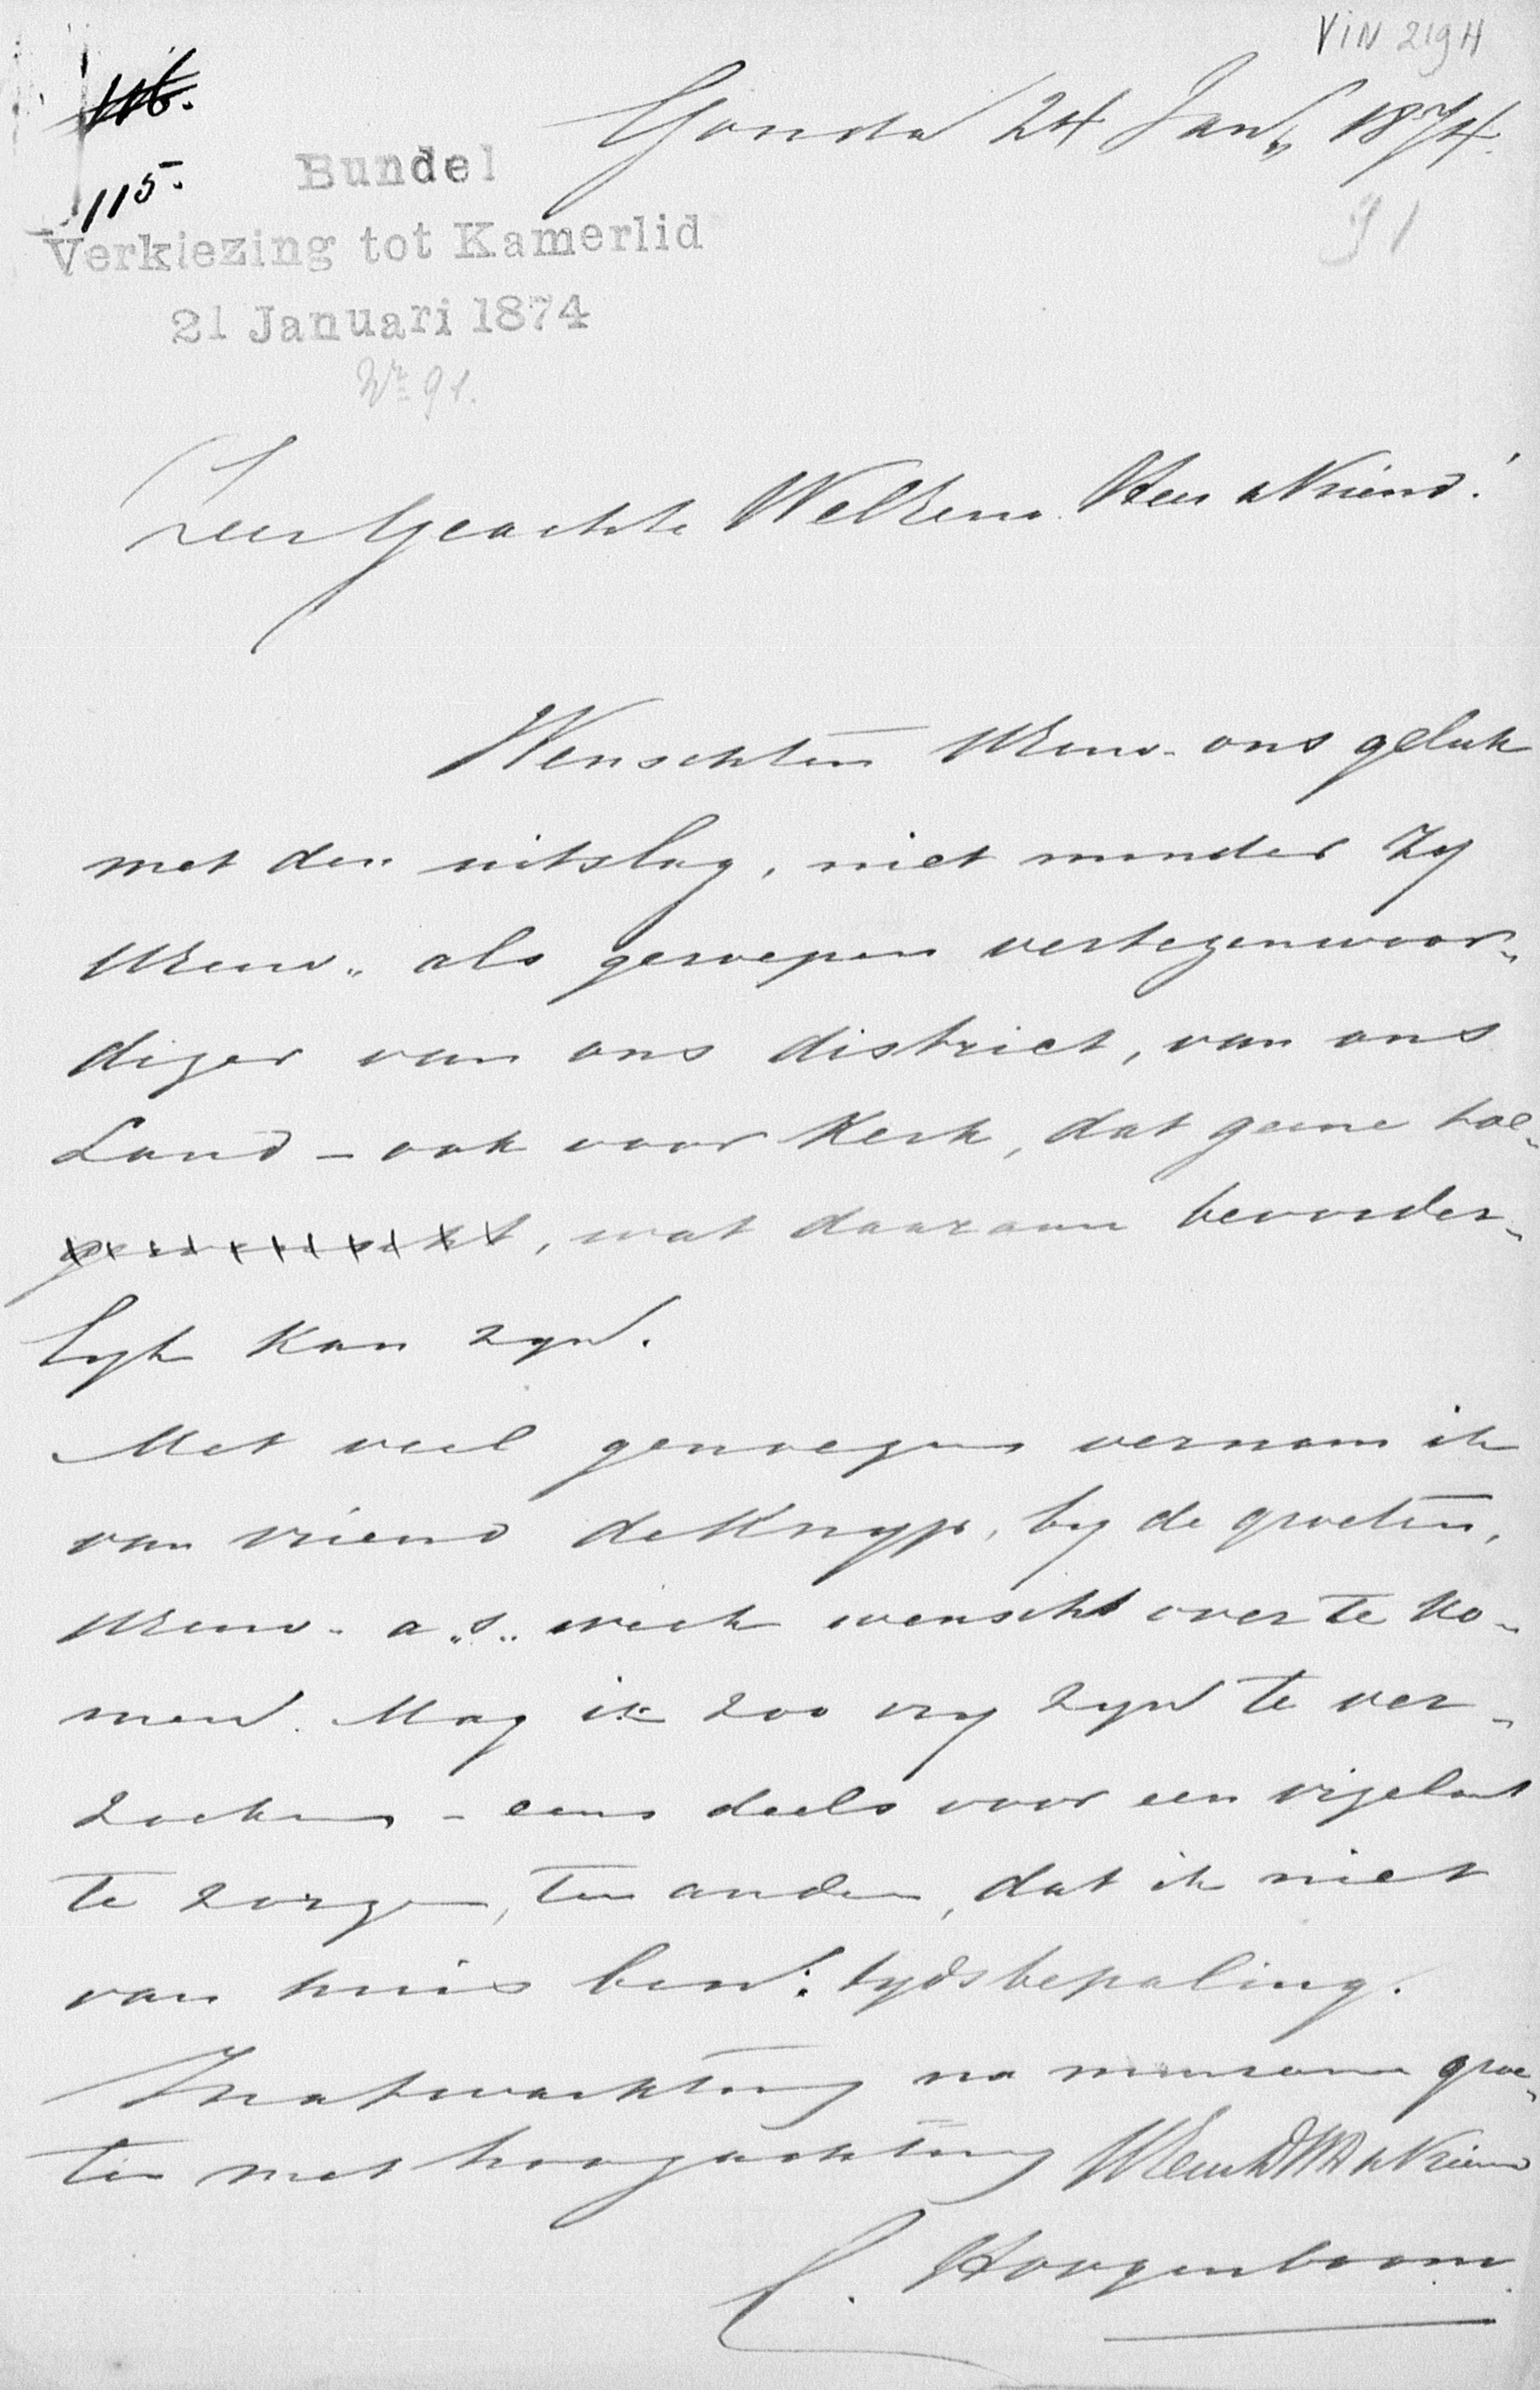 VIN 219H
116.
Gouda 24 Jan 1874.
115.
Bundel
91
Verkiezing tot Kamerlid
21 Januari 1874
Nr 91.
Zeer Geachte WelEerw. Heer & Vriend!
Wenschten UEerw. ons geluk
met den uitslag, niet minder Zy
UEerw. als geroepen vertegenwoor-
diger van ons district, van ons
Land - ook voor Kerk, dat geene toe-
, wat daaraan bevorder-
lyk kan zyn.
Met veel genoegen vernam ik
van vriend de Knyff, by de groeten,
UEerw. a.s. week wenscht over te ko-
men. Mag ik zoo vry zyn te ver-
zoeken - eens deels voor een vigelant
te zorgen, ten anderen, dat ik niet
van huis ben: tydsbepaling.
Inafwachting na minzame groe-
ten met hoogachting UEerw DW & Vriend
C. Hoogenboom